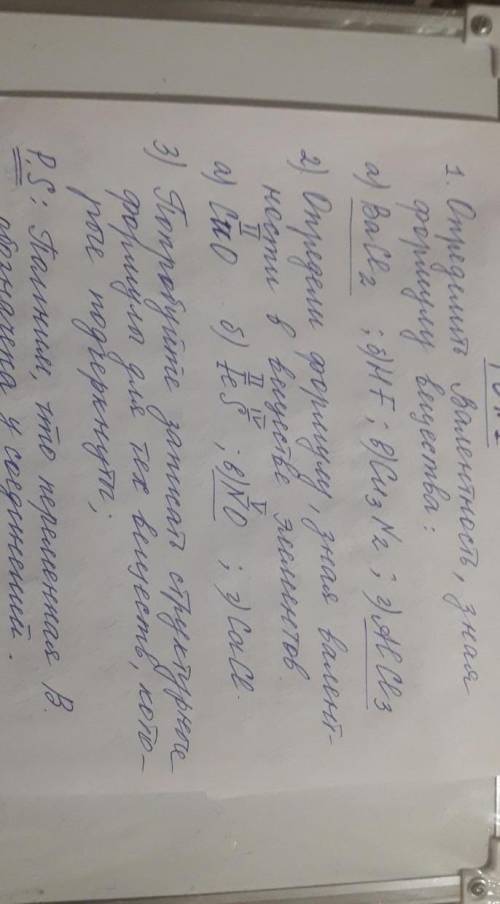 1. Определить валентность, зная
формулу вещества:
а) BaCl2 ; б) HF ; в) Cu3N2 ; г) AlCl3
2) Определи формулу, зная валент-
ности в веществе элементов.
II II IV V
а) CuO б) FeS ; в) NO ; г) CaCl.
3) Попробуйте записать структурные
формулы для тех веществ, кото-
рые подчеркнуты;
P.S: Помним, что переменная В.
обозначена у соединений.